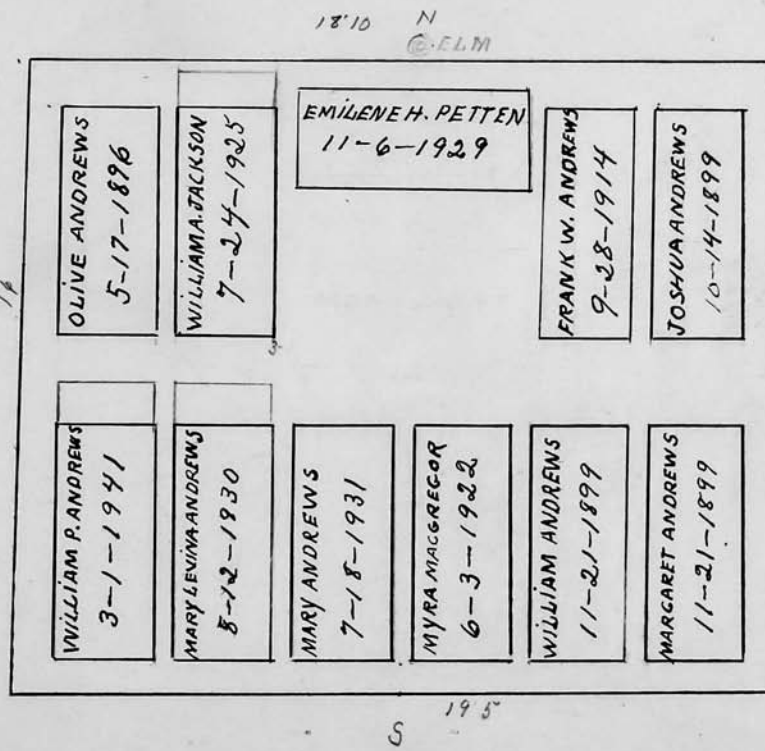 18'10 N
@ ELM
OLIVE ANDREWS
5-17-1896
WILLIAM A. JACKSON
7-24-1925
EMILENE H. PETTEN
11-6-1929
FRANK W. ANDREWS
9-28-1914
JOSHUA ANDREWS
10-14-1899
16
3
WILLIAM P. ANDREWS
3-1-1941
MARY LEVINA ANDREWS
8-12-1930
MARY ANDREWS
7-18-1931
MYRA MACGREGOR
6-3-1922
WILLIAM ANDREWS
11-21-1899
MARGARET ANDREWS
11-21-1899
19'5
S